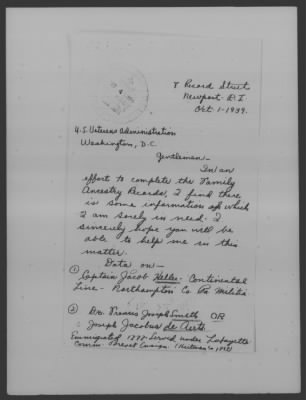 8 Ricard Street
Newport R.I.
Oct. 1-1939.
U.S. Veterans Administration
Washington, D.C.
Gentlemen-
In an
effort to complete the Family
Ancestry Records, I find there
is some information of which
I am sorely in need. I
sincerely hope you will be
able to help me in this
matter.
Data on -
① Captain Jacob Heller - Continental
Line - Northampton Co Pa Militia.
② Dr. Francis Joseph Smith OR
Joseph Jacobus de Aerts
Emmigrated 1777 Served under Lafayette
Comm. Brevet Ensign.